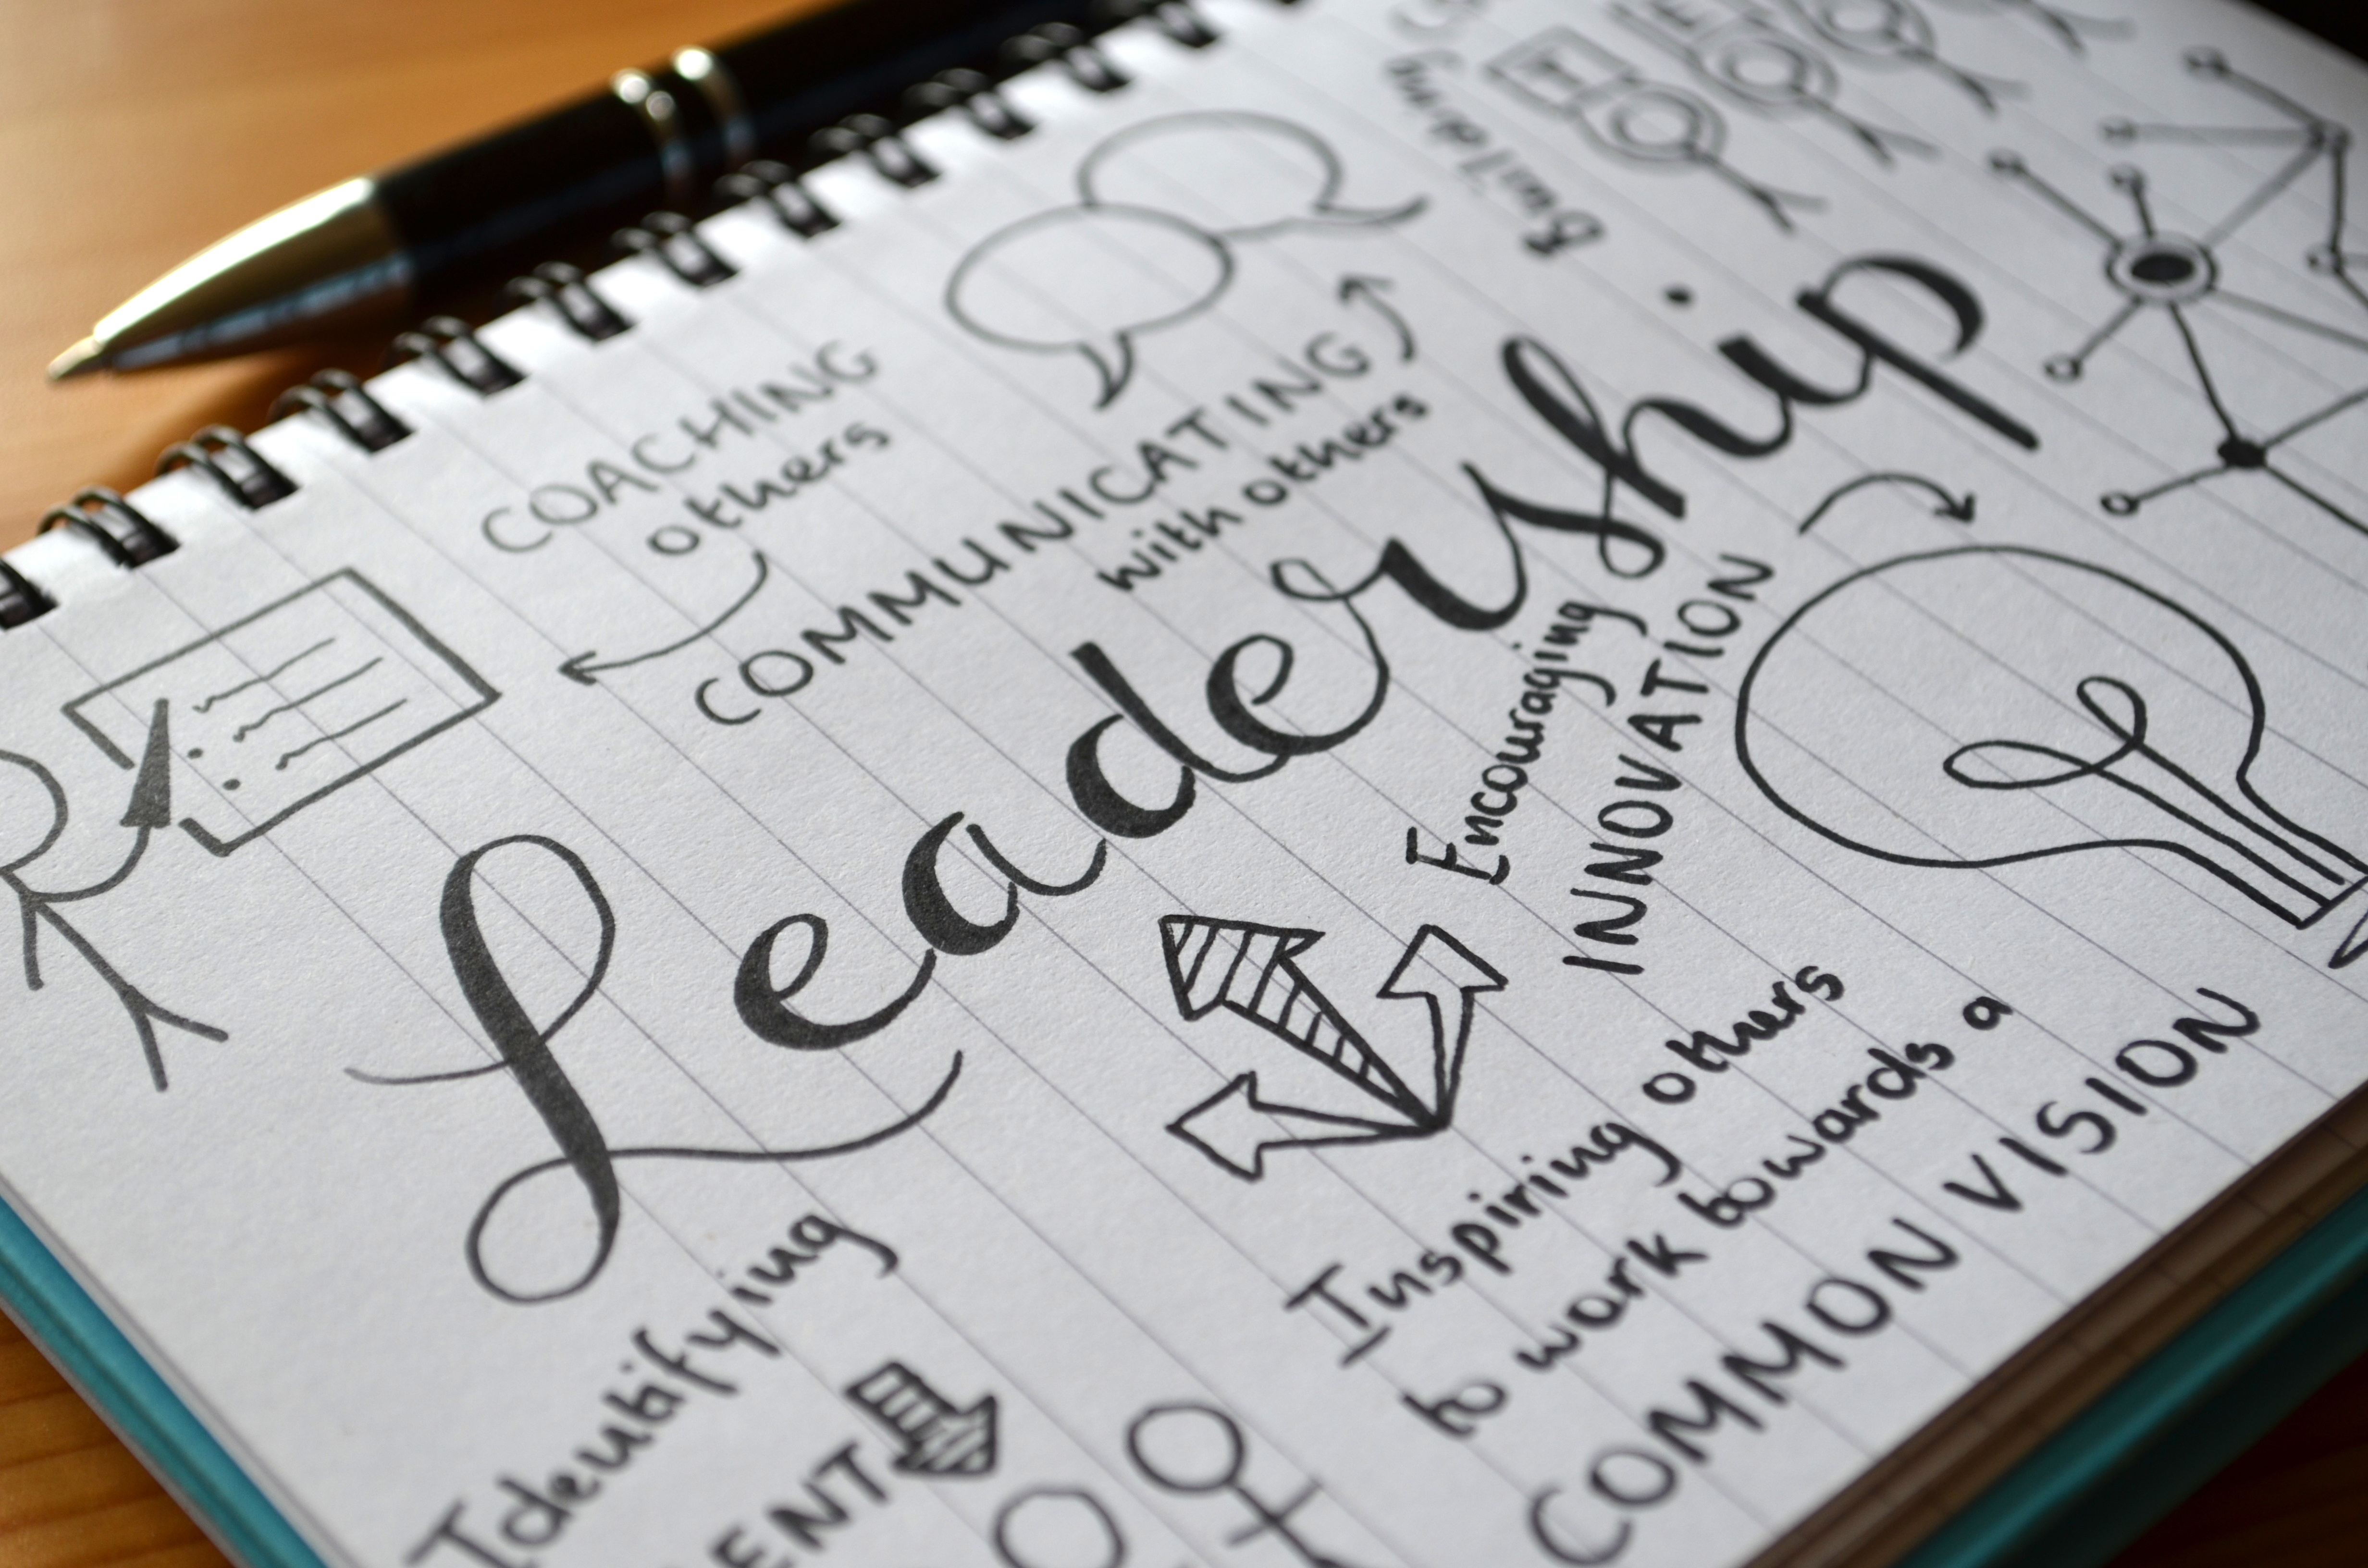 COACHING
others
COMMUNICATING
with others
Building
Leadership
Encouraging
INNOVATION
Inspiring others
to work towards a
COMMON VISION
Identifying
ENT